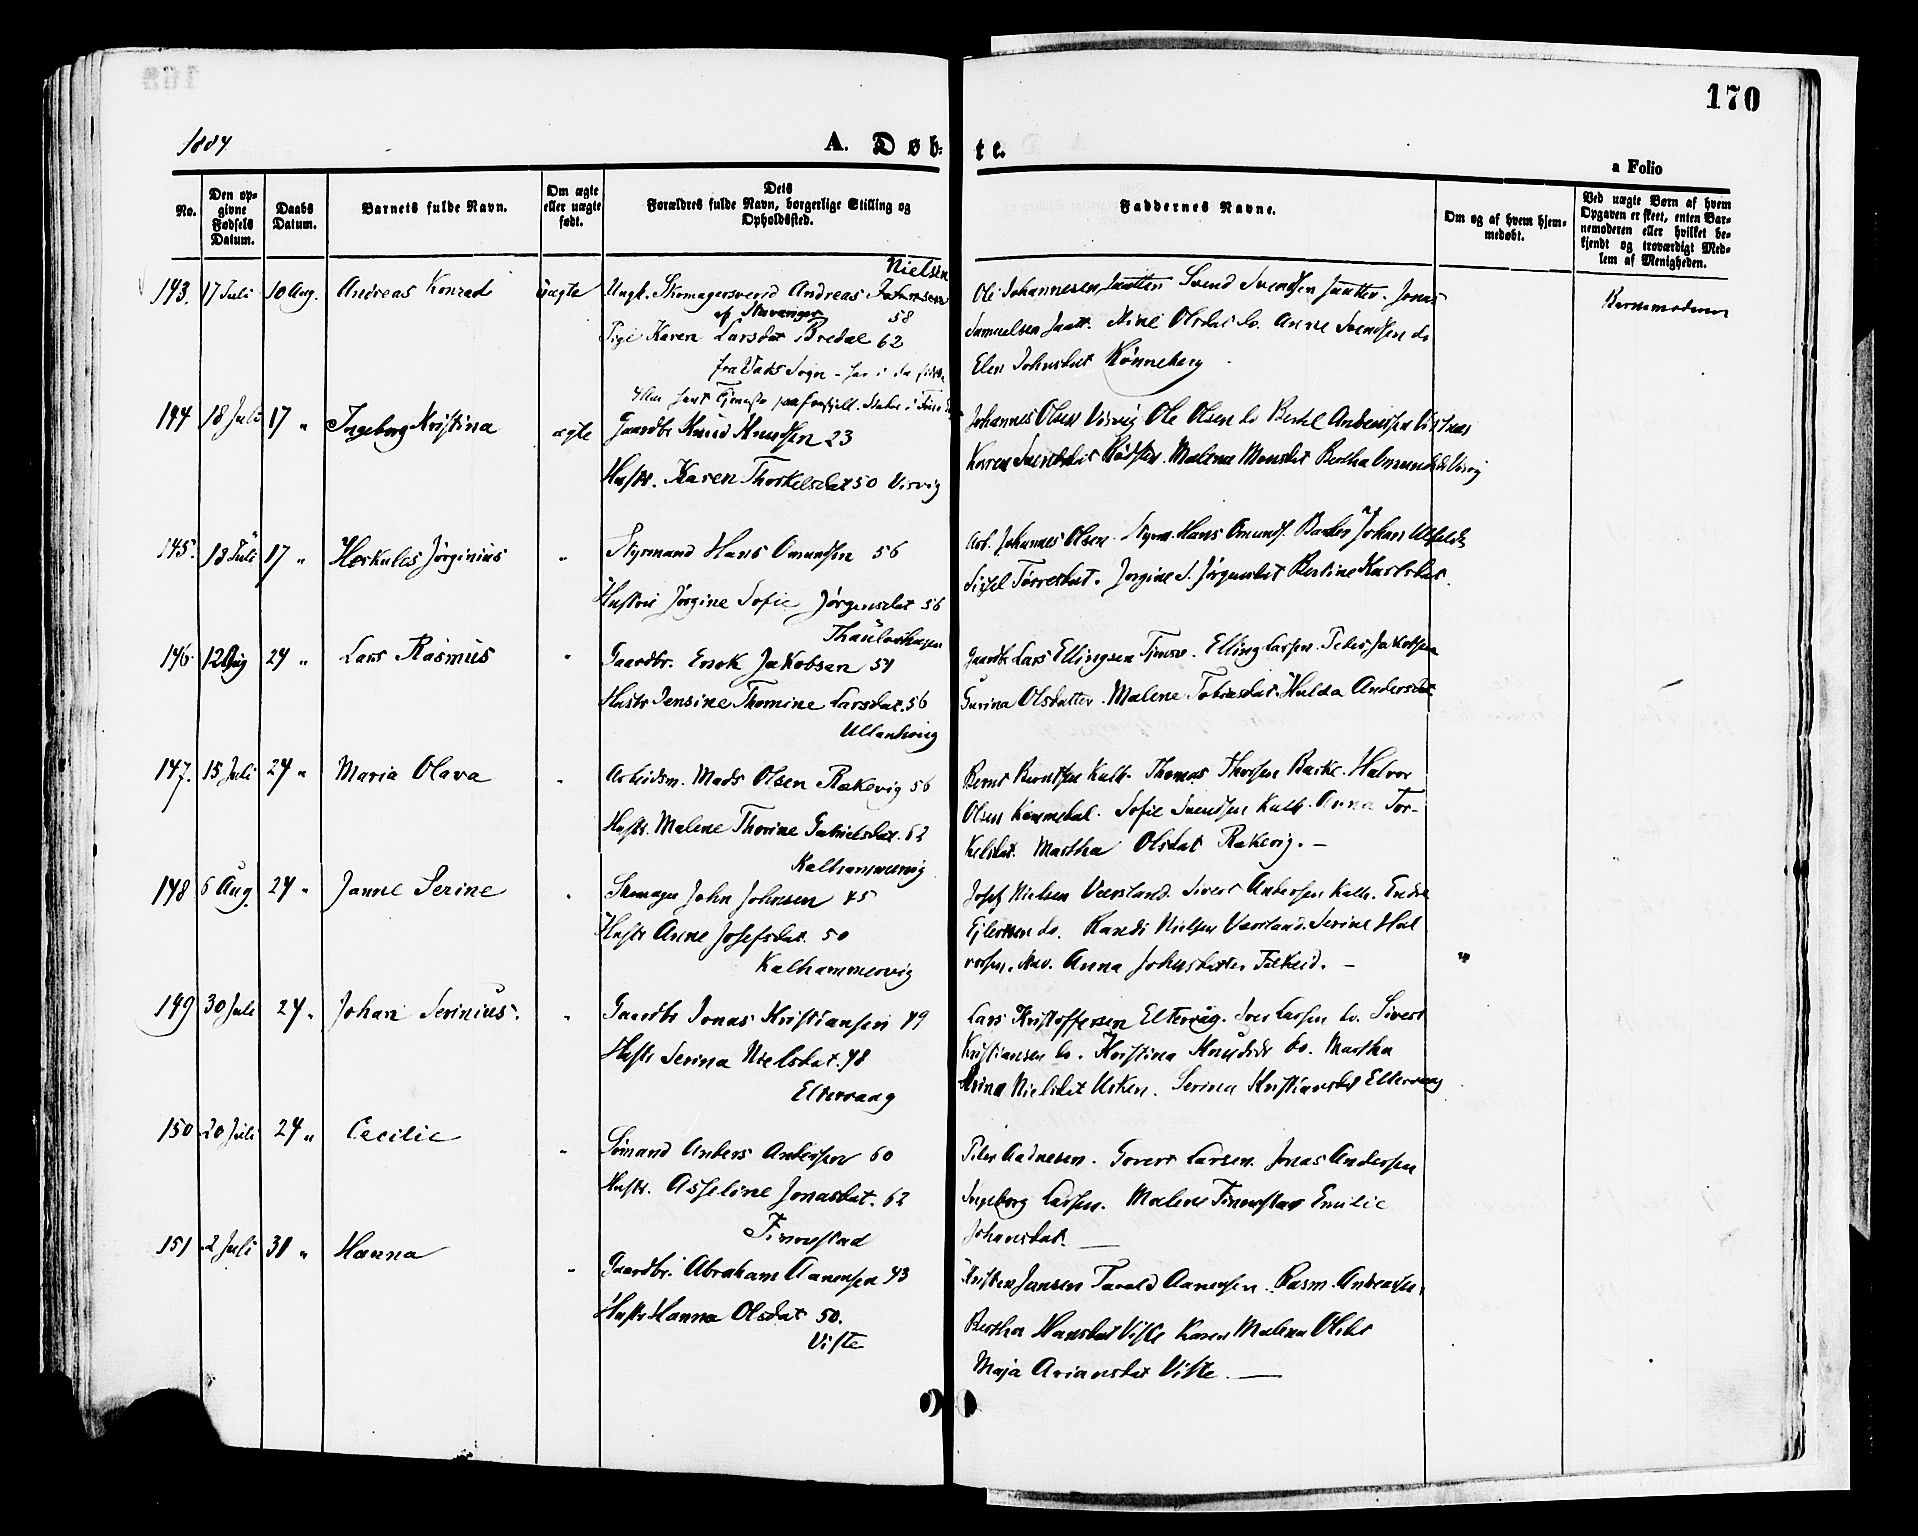 170
1884
A. Døbte.
a Folio
No.
Den opgivne Fødsels Datum.
Daabs Datum.
Barnets fulde Navn.
Om ægte eller uægte født.
Dets Forældres fulde Navn, borgerlige Stilling og Opholdssted.
Faddernes Navne.
Om og af hvem hjemmedøbt.
Ved uægte Børn af hvem Opgaven er skeet, enten Barnemoderen eller hvilket bekjendt og troværdigt Medlem af Menigheden.
143. 17 Juli 10 Aug. Andreas Konrad uægte
Nielsen
Ungk. Skomagersvend Andreas Johnsen
af Stavanger 58
Pige Karen Larsdat Bredal 62
Ole Johannesen Svend Svendsen Jonas
Samuelsen Olsdat do. Anne Svendsen do
Elen Johnsdat Rønneberg
Barnemoderen
144 18 Juli 17 " Ingeborg Kristina ægte
Gaardbr Knud Knudsen 23
Hustr. Karen Thorkelsdat 50 Visvig
Johannes Olsen Visvig Ole Olsen do Bertel Andersen Vistnæs
Karen Svendsdat Malena Monsdat Bertha Visvig
145. 13 Juli 17 " Herkules Jørginius "
Styrmand Hans Omundsen 56
Hustru Jørgine Sofie Jørgensdat 56
Thaulowhaugen
Arb. Johannes Olsen. Styrm. Hans Omunds. Johan
Sissel Torresdat. Jørgine S. Jørgensdat Bertine Karlsdat.
146. 12 Aug 24 " Lars Rasmus "
Gaardbr. Enok Jakobsen 54
Hustr Jensine Thomine Larsdat. 56
Ullenhaug
Gaardb. Lars Ellingsen Tjensv. Elling Larsen. Peder Jakobsen
Gurina Olsdatter. Malene Tobiasdat. Hulda Andersdat.
147. 15 Juli 24 " Maria Olava "
Arbeidsm. Mads Olsen Rakevig 56
Hustr. Malene Thorine Gabrielsdat. 62
Kalhammervig
Bernt Berntsen Kalh. Thomas Thorsen Bakke. Halvor
Olsen Sofie Svendsen Kalh. Anna Tor-
kelsdat. Martha Olsdat Rakevig. —
148 6 Aug. 24 " Janne Serine "
Skomager John Johnsen 45
Hustr Anne Josefsdat. 50
Kalhammervig
Josef Nielsen Værsland. Sivert Andersen Kalh. Endre
Ejlertsen do. Randi Nielsen Værsland. Serine Hal
vorsen. Stav. Anna Johnsdatter Falkeid. —
149 30 Juli 24 " Johan Serinius. "
Gaardbr Jonas Kristiansen 49
Hustr Serina Nielsdat. 48
Eltervaag
Lars Kristoffersen Eltervåg. Iver Larsen do. Sivert
Kristiansen do. Kristina Knudsdt do. Martha
Nielsdat Usken. Serina Kristiansdat Eltervaag
150 20 Juli 24 " Cecilie "
Sømand Anders Andersen 60
Hustr. Asseline Jonasdat. 62
Finnestad
Peder Aadnesen. Govert Larsen. Jonas Andersen
Ingeborg Larsen. Malene Finnestad Emilie
Johansdat. —
151 2 Juli 31 " Hanna "
Gaardbr. Abraham Aanensen 43
Hustr Hanna Olsdat 50.
Viste
Kristen Jansen Tarald Aanensen. Rasm. Andreasen.
Bertha Hansdat Viste Karen Malena Olsdat
Maja Ariansdat Viste. —